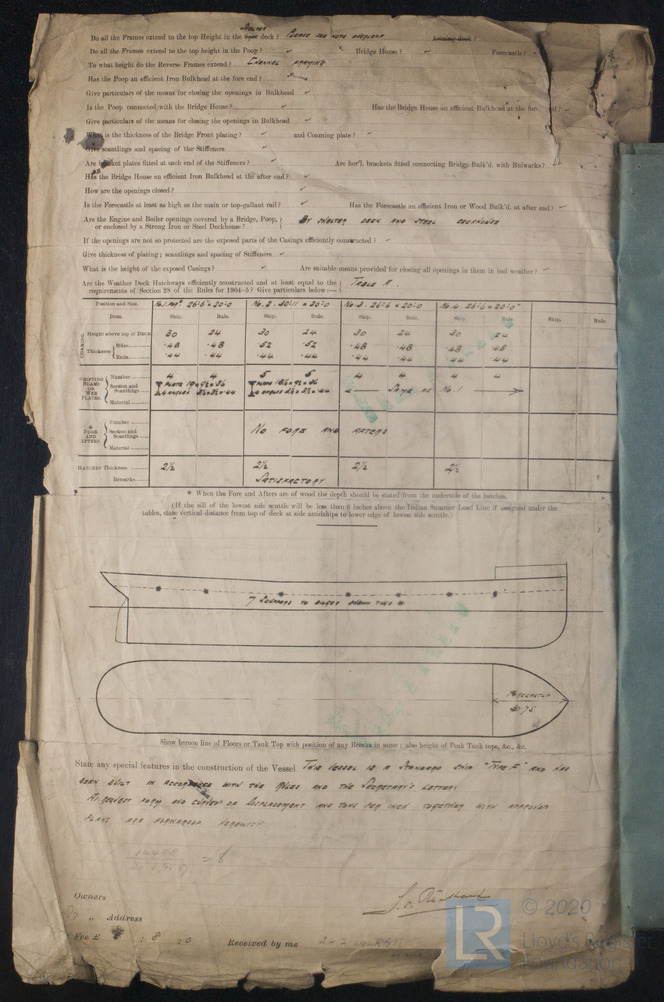 Do all the Frames extend to the top Height in the Shelter deck? Please see note
Do all the Frames extend to the top height in the Poop? ✓ Bridge House? ✓ Forecastle?
To what height do the Reverse Frames extend? Channel framing
Has the Poop an efficient Iron Bulkhead at the fore end?
Give particulars of the means for closing the openings in Bulkhead ✓
Is the Poop connected with the Bridge House? ✓ Has the Bridge House an efficient Bulkhead at the fore end?
Give particulars of the means for closing the openings in Bulkhead ✓
What is the thickness of the Bridge Front plating? ✓ and Coaming plate? ✓
Give scantlings and spacing of the Stiffeners ✓
Are bracket plates fitted at each end of the Stiffeners? ✓ Are hor'l. brackets fitted connecting Bridge Bulk'd. with Bulwarks?
Has the Bridge House an efficient Iron Bulkhead at the after end? ✓
How are the openings closed? ✓
Is the Forecastle at least as high as the main or top-gallant rail? ✓ Has the Forecastle an efficient Iron or Wood Bulk'd. at after end? ✓
Are the Engine and Boiler openings covered by a Bridge, Poop, or enclosed by a Strong Iron or Steel Deckhouse? By shelter deck and steel deckhouse
If the openings are not so protected are the exposed parts of the Casings efficiently constructed? ✓
Give thickness of plating; scantlings and spacing of Stiffeners ✓
What is the height of the exposed Casings? ✓ Are suitable means provided for closing all openings in them in bad weather? ✓
Are the Weather Deck Hatchways efficiently constructed and at least equal to the
requirements of Section 28 of the Rules for 1904-5? Give particulars below:— Table A.
Position and Size. No. 2. 30'-11" x 20'-0 No. 3. 26'-6 x 20'-0 No. 4. 26'-6 x 20'-0"
Item. Ship. Rule. Ship. Rule. Ship. Rule. Ship. Rule. Ship. Rule.
COAMING Height above top of DECK 30 24 30 24 30 24 30 24
Thickness Sides .48 .48 .52 .52 .48 .48 .48 .48
Ends .44 .44 .44 .44 .44 .44 .44 .44
SHIFTING BEAMS OR WEB PLATES Number 4 4 5 5 4 4 4 4
Section and Scantlings Same as No 1
Material
* FORE AND AFTERS Number
Section and Scantlings No fore and afters
Material
HATCHES Thickness 2½ 2½ 2½ 2½
Remarks Satisfactory
* When the Fore and Afters are of wood the depth should be stated from the underside of the hatches.
(If the sill of the lowest side scuttle will be less than 6 inches above the Indian Summer Load Line if assigned under the
tables, state vertical distance from top of deck at side amidships to lower edge of lowest side scuttle.)
7 Scuppers to shown thus
Forecastle
30.75
Show hereon line of Floors or Tank Top with position of any Breaks in same; also height of Peak Tank tops, &c., &c.
State any special features in the construction of the Vessel This vessel is a standard ship "Type E" and has
been built in accordance with the Rules and the Secretary's letters
and curves of displacement and tons per inch together with approved
plans are forwarded herewith
= 8
Owners
,, Address
Fee £ : 8 : 0 Received by me
© 2020
LR
Lloyd's Register
Foundation